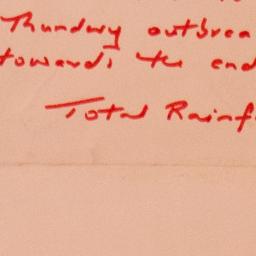 Thundery outbrea
towards the end
Total Rainf